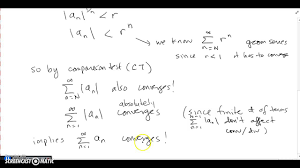 |aₙ|^(1/n) < r
|aₙ| < rⁿ → we know ∞ Σ n=N rⁿ geom series
since r<1 it has to converge
so by comparison test (CT)
∞ Σ n=N |aₙ| also converges!
absolutely
∞ Σ n=1 |aₙ| converges (since finite # of terms
∞ Σ n=1 |aₙ| don't affect
conv/div)
implies ∞ Σ n=1 aₙ converges!
SCREENCAST-O-MATIC